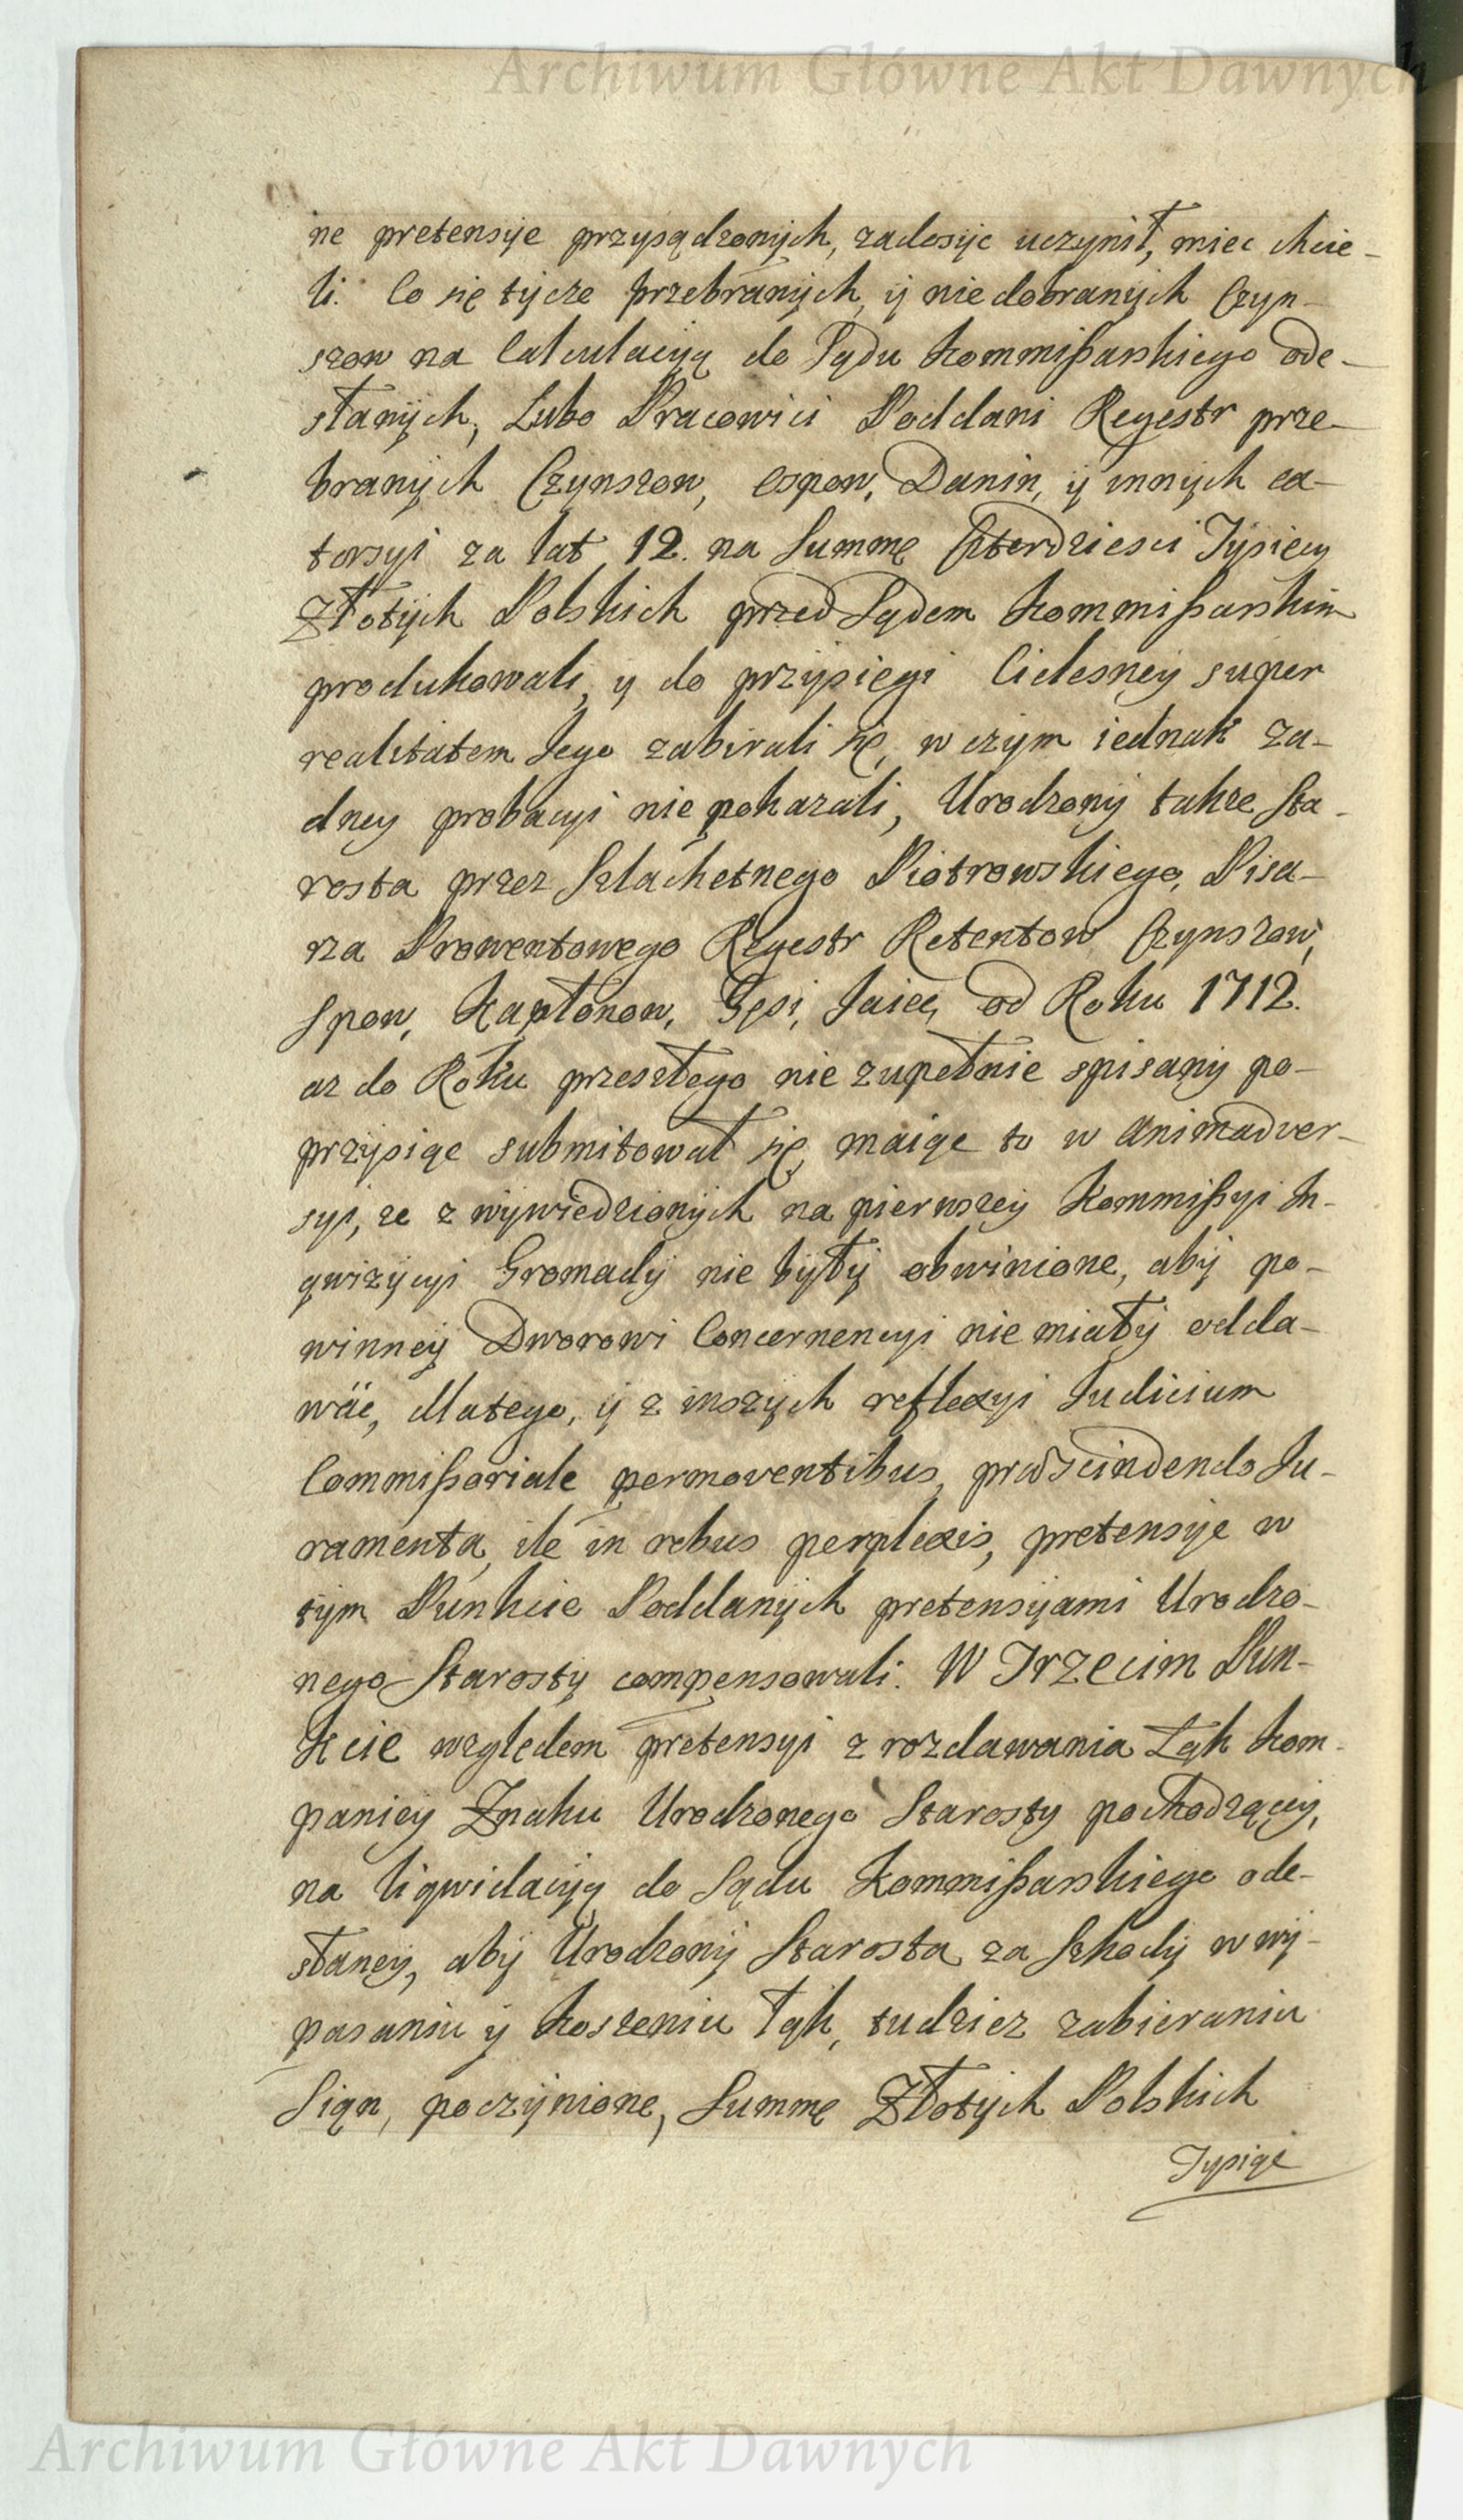 Archiwum Główne Akt Dawnych
ne pretensije przysądzonych, zadosyc uczynił, miec chcie-
li. Co się tycze przebranych, y nie dobranych Czyn-
szow na Calculacyą do Sądu Kommißarskiego ode-
słanych, Lubo Pracowici Poddani Regestr prze-
branych Czynszow, Ospow, Danin, y innych ea-
torsyi za lat 12. na Summę Czterdziesci Tysięcy
Złotych Polskich przed Sądem Kommißarskim
produkowali, y do przysięgi Cielesney super
realitatem Jego zabirali się, w czym iednak za-
dney probacyi nie pokazali, Urodzony takze Sta-
rosta przez Szlachetnego Piotrowskiego, Pisa-
rza Prowentowego Regestr Retentow Czynszow,
Spow, Kapłonow, Gęsi, Jaiec, od Roku 1712.
az do Roku przeszłego nie zupełnie spisany po-
przysiąc submitował się, maiąc to w animadver-
syi, ze z wywiedzionych na pierwszey Kommißyi In-
qwizycyi Gromady nie były obwinione, aby po-
winney Dworowi Concernencyi nie miały odda-
wać, dlatego, y z inszych reflexyi Judicium
Commißoriale permoventibus, præscindendo Ju-
ramenta, ile in rebus perplexis, pretensije w
tym Punkcie Poddanych pretensyami Urodzo-
nego Starosty compensowali. W Trzecim Pun-
kcie względem pretensyi z rozdawania Łąk kom-
paniey Znaku Urodzonego Starosty pochodzącey,
na liqwidacyą do Sądu Kommißarskiego ode-
słaney, aby Urodzony Starosta za Szkody w wy-
pasaniu y koszeniu łąk, tudziez zabieraniu
Sian, poczynione, Summę Złotych Polskich
Tysiąc
Archiwum Główne Akt Dawnych